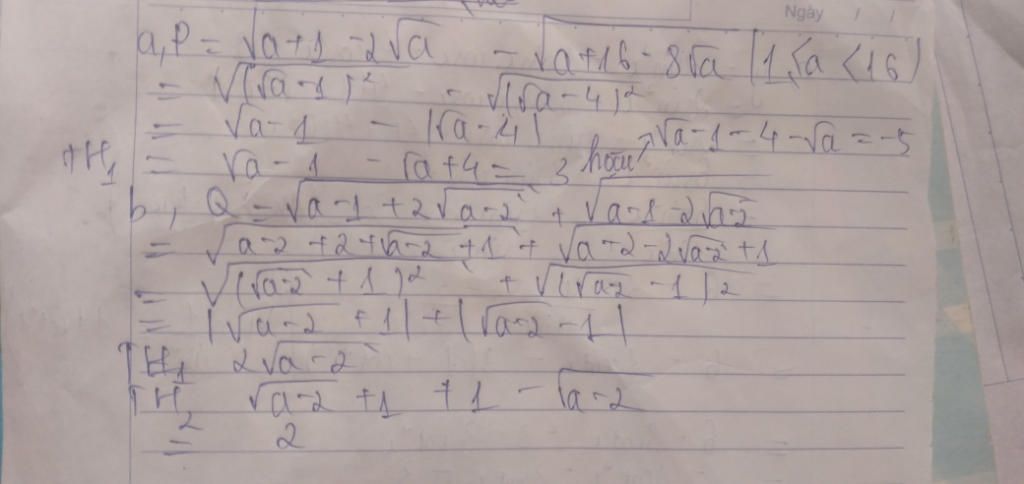 Ngày / /
a, P = √(a+1-2√a) - √(a+16-8√a) (1≤a<16)
= √((√a-1)²) - √((√a-4)²)
= √a-1 - |√a-4|
TH1 = √a-1 - √a+4 = 3 hoặc √a-1-4-√a = -5
b, Q = √(a-1+2√(a-2)) + √(a-1-2√(a-2))
= √(a-2+2+√(a-2)+1) + √(a-2-2√(a-2)+1)
= √((√(a-2)+1)²) + √((√(a-2)-1)2
= |√(a-2)+1| + |√(a-2)-1|
TH1 2√(a-2)
TH2 √(a-2)+1 +1 - √(a-2)
= 2